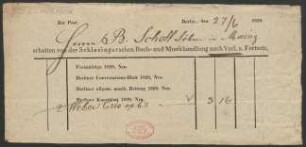 Per Post. Berlin, den 27/6 1829.
Herrn B. Schott Söhne in Mainz
erhalten von der Schlesingerschen Buch- und Musikhandlung nach Verl. u. Fortsetz.
Freimüthige 1829, Nro.
Berliner Conversations-Blatt 1829, Nro.
Berliner allgem. musik. Zeitung 1829, Nro.
Berliner 1829, Nro.
2 Weber Trio op 63 3 16